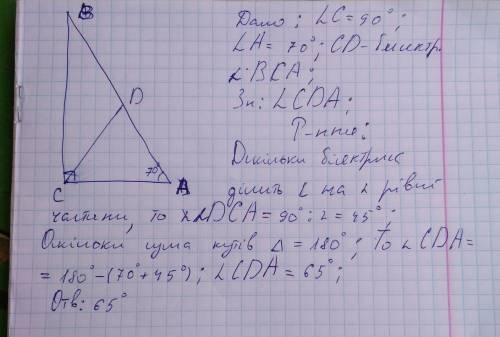 B
D
70°
C
A
Дано: ∠C = 90°;
∠A = 70°; CD - бісектр.
∠BCA;
Зн: ∠CDA;
Р-ння:
Оскільки бісектриса
ділить ∠ на 2 рівні
частини, то ∠DCA = 90° : 2 = 45°;
Оскільки сума кутів Δ = 180°, то ∠CDA =
= 180° - (70° + 45°); ∠CDA = 65°;
Отв: 65°